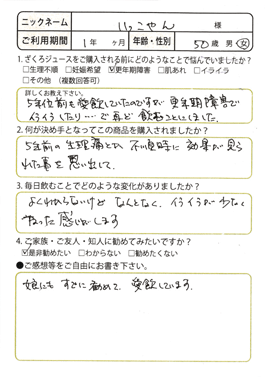 ニックネーム りっこやん 様
ご利用期間 1年 ヶ月 年齢・性別 50歳 男・女
1.ざくろジュースをご購入される前にどのようなことで悩んでいましたか?
□生理不順 □妊娠希望 ☑更年期障害 □肌あれ □イライラ
□その他 (複数回答可)
詳しくお教え下さい。
5年位前も愛飲していたのですが、更年期障害で
イライラしたり…で再び飲むことにしました。
2.何が決め手となってこの商品を購入されましたか?
5年前の生理痛とか、不順時に効果が見ら
れた事を思い出して。
3.毎日飲むことでどのような変化がありましたか?
よくわからないけど なんとなく、イライラが少なく
なった感じがします
4.ご家族・ご友人・知人に勧めてみたいですか?
☑是非勧めたい □わからない □勧めたくない
●ご感想等をご自由にお書き下さい。
娘にもすでに勧めて、愛飲しています。